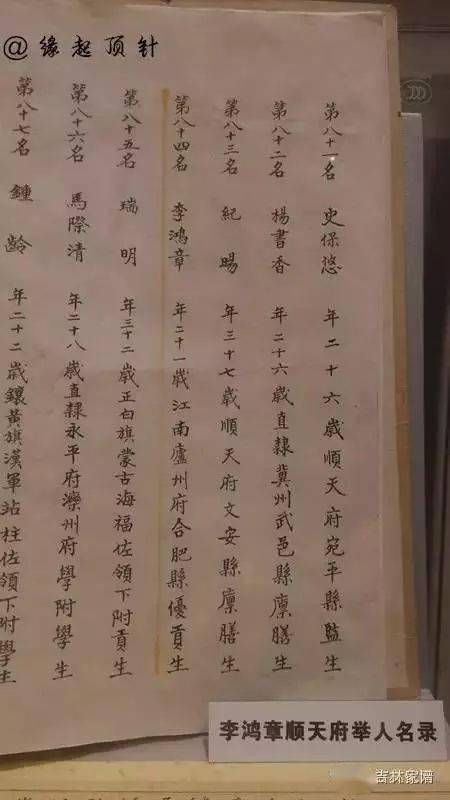 @缘起顶针
第八十一名 史保悠 年二十六歲順天府宛平縣監生
第八十二名 楊書香 年二十六歲直隸冀州武邑縣廪膳生
第八十三名 紀晹 年三十七歲順天府文安縣廪膳生
第八十四名 李鴻章 年二十一歲江南廬州府合肥縣優貢生
第八十五名 瑞明 年三十二歲正白旗蒙古海福佐領下附貢生
第八十六名 馬際清 年二十八歲直隸永平府灤州府學附學生
第八十七名 鍾齡 年二十二歲鑲黃旗漢軍站柱佐領下附學生
李鸿章顺天府举人名录
吉林家谱